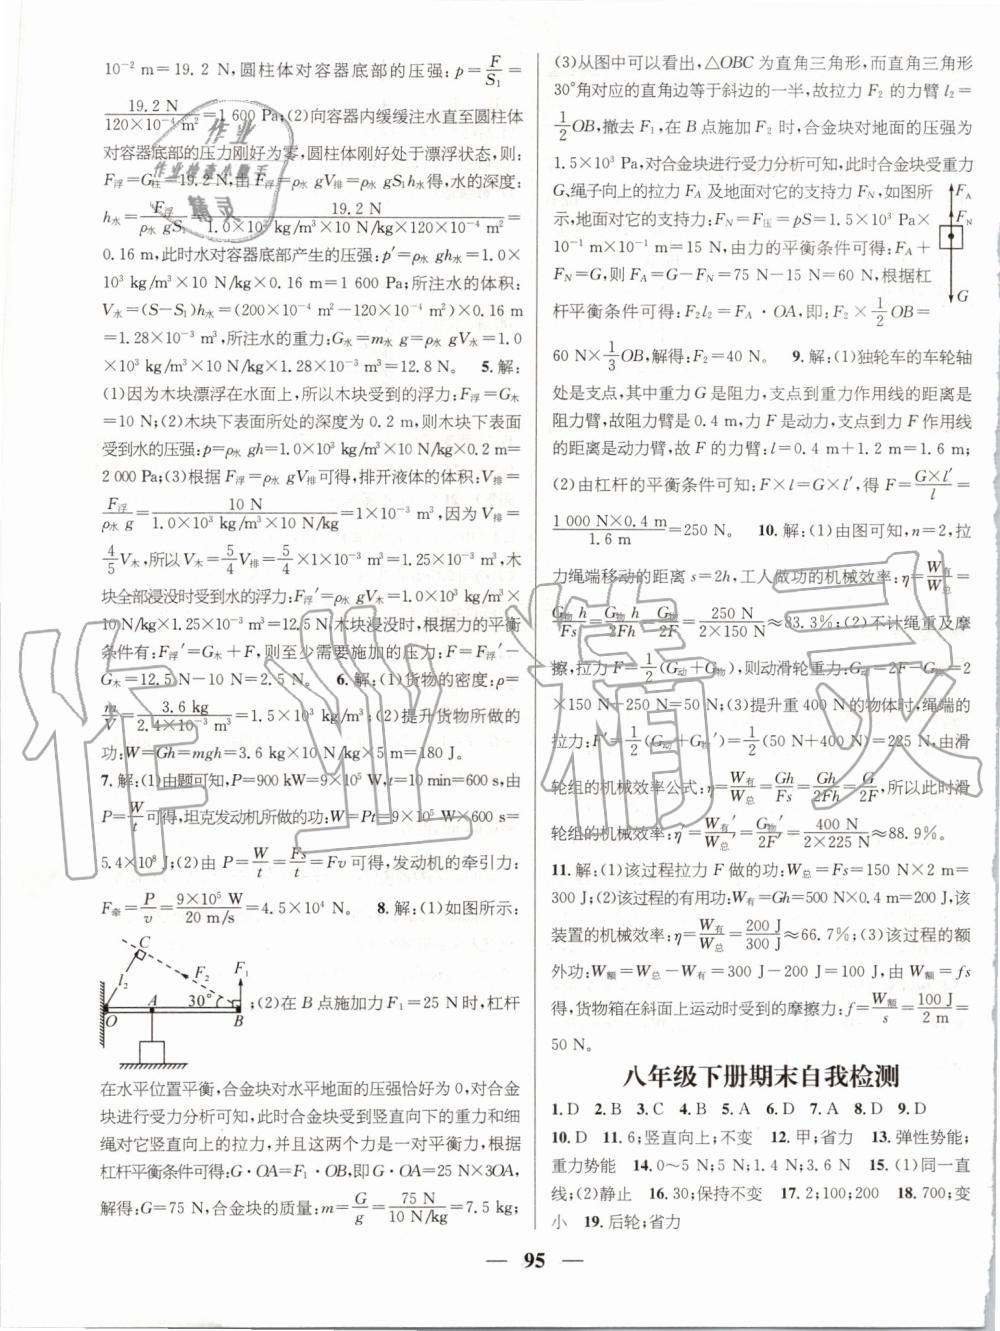 10⁻² m=19.2 N,圆柱体对容器底部的压强:p=F/S₁=
19.2 N/(120×10⁻⁴ m²)=1 600 Pa;(2)向容器内缓缓注水直至圆柱体
对容器底部的压力刚好为零,圆柱体刚好处于漂浮状态,则:
F浮=G柱=19.2 N,由 F浮=ρ水 gV排=ρ水 gS₁h水得,水的深度:
h水=F浮/(ρ水 gS₁)=19.2 N/(1.0×10³ kg/m³×10 N/kg×120×10⁻⁴ m²)=
0.16 m,此时水对容器底部产生的压强:p′=ρ水 gh水=1.0×
10³ kg/m³×10 N/kg×0.16 m=1 600 Pa;所注水的体积:
V水=(S−S₁)h水=(200×10⁻⁴ m²−120×10⁻⁴ m²)×0.16 m
=1.28×10⁻³ m³,所注水的重力:G水=m水 g=ρ水 gV水=1.0
×10³ kg/m³×10 N/kg×1.28×10⁻³ m³=12.8 N。 5.解:
(1)因为木块漂浮在水面上,所以木块受到的浮力:F浮=G木
=10 N;(2)木块下表面所处的深度为 0.2 m,则木块下表面
受到水的压强:p=ρ水 gh=1.0×10³ kg/m³×10 N/kg×0.2 m=
2 000 Pa;(3)根据 F浮=ρ水 gV排可得,排开液体的体积:V排=
F浮/(ρ水 g)=10 N/(1.0×10³ kg/m³×10 N/kg)=1×10⁻³ m³,因为 V排=
4/5 V木,所以 V木=5/4 V排=5/4×1×10⁻³ m³=1.25×10⁻³ m³,木
块全部浸没时受到水的浮力:F浮′=ρ水 gV木=1.0×10³ kg/m³×10 N/
kg×1.25×10⁻³ m³=12.5 N,木块浸没时,根据力的平衡
条件有:F浮′=G木+F,则至少需要施加的压力:F=F浮′−
G木=12.5 N−10 N=2.5 N。 6.解:(1)货物的密度:ρ=
m/V=3.6 kg/(2.4×10⁻³ m³)=1.5×10³ kg/m³;(2)提升货物所做的
功:W=Gh=mgh=3.6 kg×10 N/kg×5 m=180 J。
7.解:(1)由题可知,P=900 kW=9×10⁵ W,t=10 min=600 s,由
P=W/t可得,坦克发动机所做的功:W=Pt=9×10⁵ W×600 s=
5.4×10⁸ J;(2)由 P=W/t=Fs/t=Fv 可得,发动机的牵引力:
F牵=P/v=9×10⁵ W/(20 m/s)=4.5×10⁴ N。 8.解:(1)如图所示:
C
l₂ F₂ F₁
30°
O A B
;(2)在 B 点施加力 F₁=25 N时,杠杆
在水平位置平衡,合金块对水平地面的压强恰好为 0,对合金
块进行受力分析可知,此时合金块受到竖直向下的重力和细
绳对它竖直向上的拉力,并且这两个力是一对平衡力,根据
杠杆平衡条件可得:G·OA=F₁·OB,即 G·OA=25 N×3OA,
解得:G=75 N,合金块的质量:m=G/g=75 N/(10 N/kg)=7.5 kg;
(3)从图中可以看出,△OBC 为直角三角形,而直角三角形
30°角对应的直角边等于斜边的一半,故拉力 F₂ 的力臂 l₂=
1/2 OB,撤去 F₁,在 B 点施加 F₂ 时,合金块对地面的压强为
1.5×10³ Pa,对合金块进行受力分析可知,此时合金块受重力
G、绳子向上的拉力 FA 及地面对它的支持力 FN,如图所
示,地面对它的支持力:FN=F压=pS=1.5×10³ Pa×
10⁻¹ m×10⁻¹ m=15 N,由力的平衡条件可得:FA+
FN=G,则 FA=G−FN=75 N−15 N=60 N,根据杠
杆平衡条件可得:F₂l₂=FA·OA,即:F₂×1/2 OB=
FA
FN
G
60 N×1/3 OB,解得:F₂=40 N。 9.解:(1)独轮车的车轮轴
处是支点,其中重力 G 是阻力,支点到重力作用线的距离是
阻力臂,故阻力臂是 0.4 m,力 F 是动力,支点到力 F 作用线
的距离是动力臂,故 F 的力臂:l=0.4 m+1.2 m=1.6 m;
(2)由杠杆的平衡条件可知:F×l=G×l′,得 F=G×l′/l=
1 000 N×0.4 m/1.6 m=250 N。 10.解:(1)由图可知,n=2,拉
力绳端移动的距离 s=2h,工人做功的机械效率:η=W有/W总=
G物 h/Fs=G物 h/2Fh=G物/2F=250 N/(2×150 N)≈83.3%;(2)不计绳重及摩
擦,拉力 F=1/2(G动+G物),则动滑轮重力:G动=2F−G物=2
×150 N−250 N=50 N;(3)提升重 400 N的物体时,绳端的
拉力:F′=1/2(G动+G物′)=1/2(50 N+400 N)=225 N,由滑
轮组的机械效率公式:η=W有/W总=Gh/Fs=Gh/2Fh=G/2F,所以此时滑
轮组的机械效率:η′=W有′/W总′=G物′/2F′=400 N/(2×225 N)≈88.9%。
11.解:(1)该过程拉力 F 做的功:W总=Fs=150 N×2 m=
300 J;(2)该过程的有用功:W有=Gh=500 N×0.4 m=200 J,该
装置的机械效率:η=W有/W总=200 J/300 J≈66.7%;(3)该过程的额
外功:W额=W总−W有=300 J−200 J=100 J,由 W额=fs
得,货物箱在斜面上运动时受到的摩擦力:f=W额/s=100 J/2 m=
50 N。
八年级下册期末自我检测
1.D 2.B 3.C 4.B 5.A 6.D 7.A 8.D 9.D
10.D 11.6;竖直向上;不变 12.甲;省力 13.弹性势能;
重力势能 14.0～5 N;5 N;1.4 N;3.6 N 15.(1)同一直
线;(2)静止 16.30;保持不变 17.2;100;200 18.700;变
小 19.后轮;省力
— 95 —
作业精灵